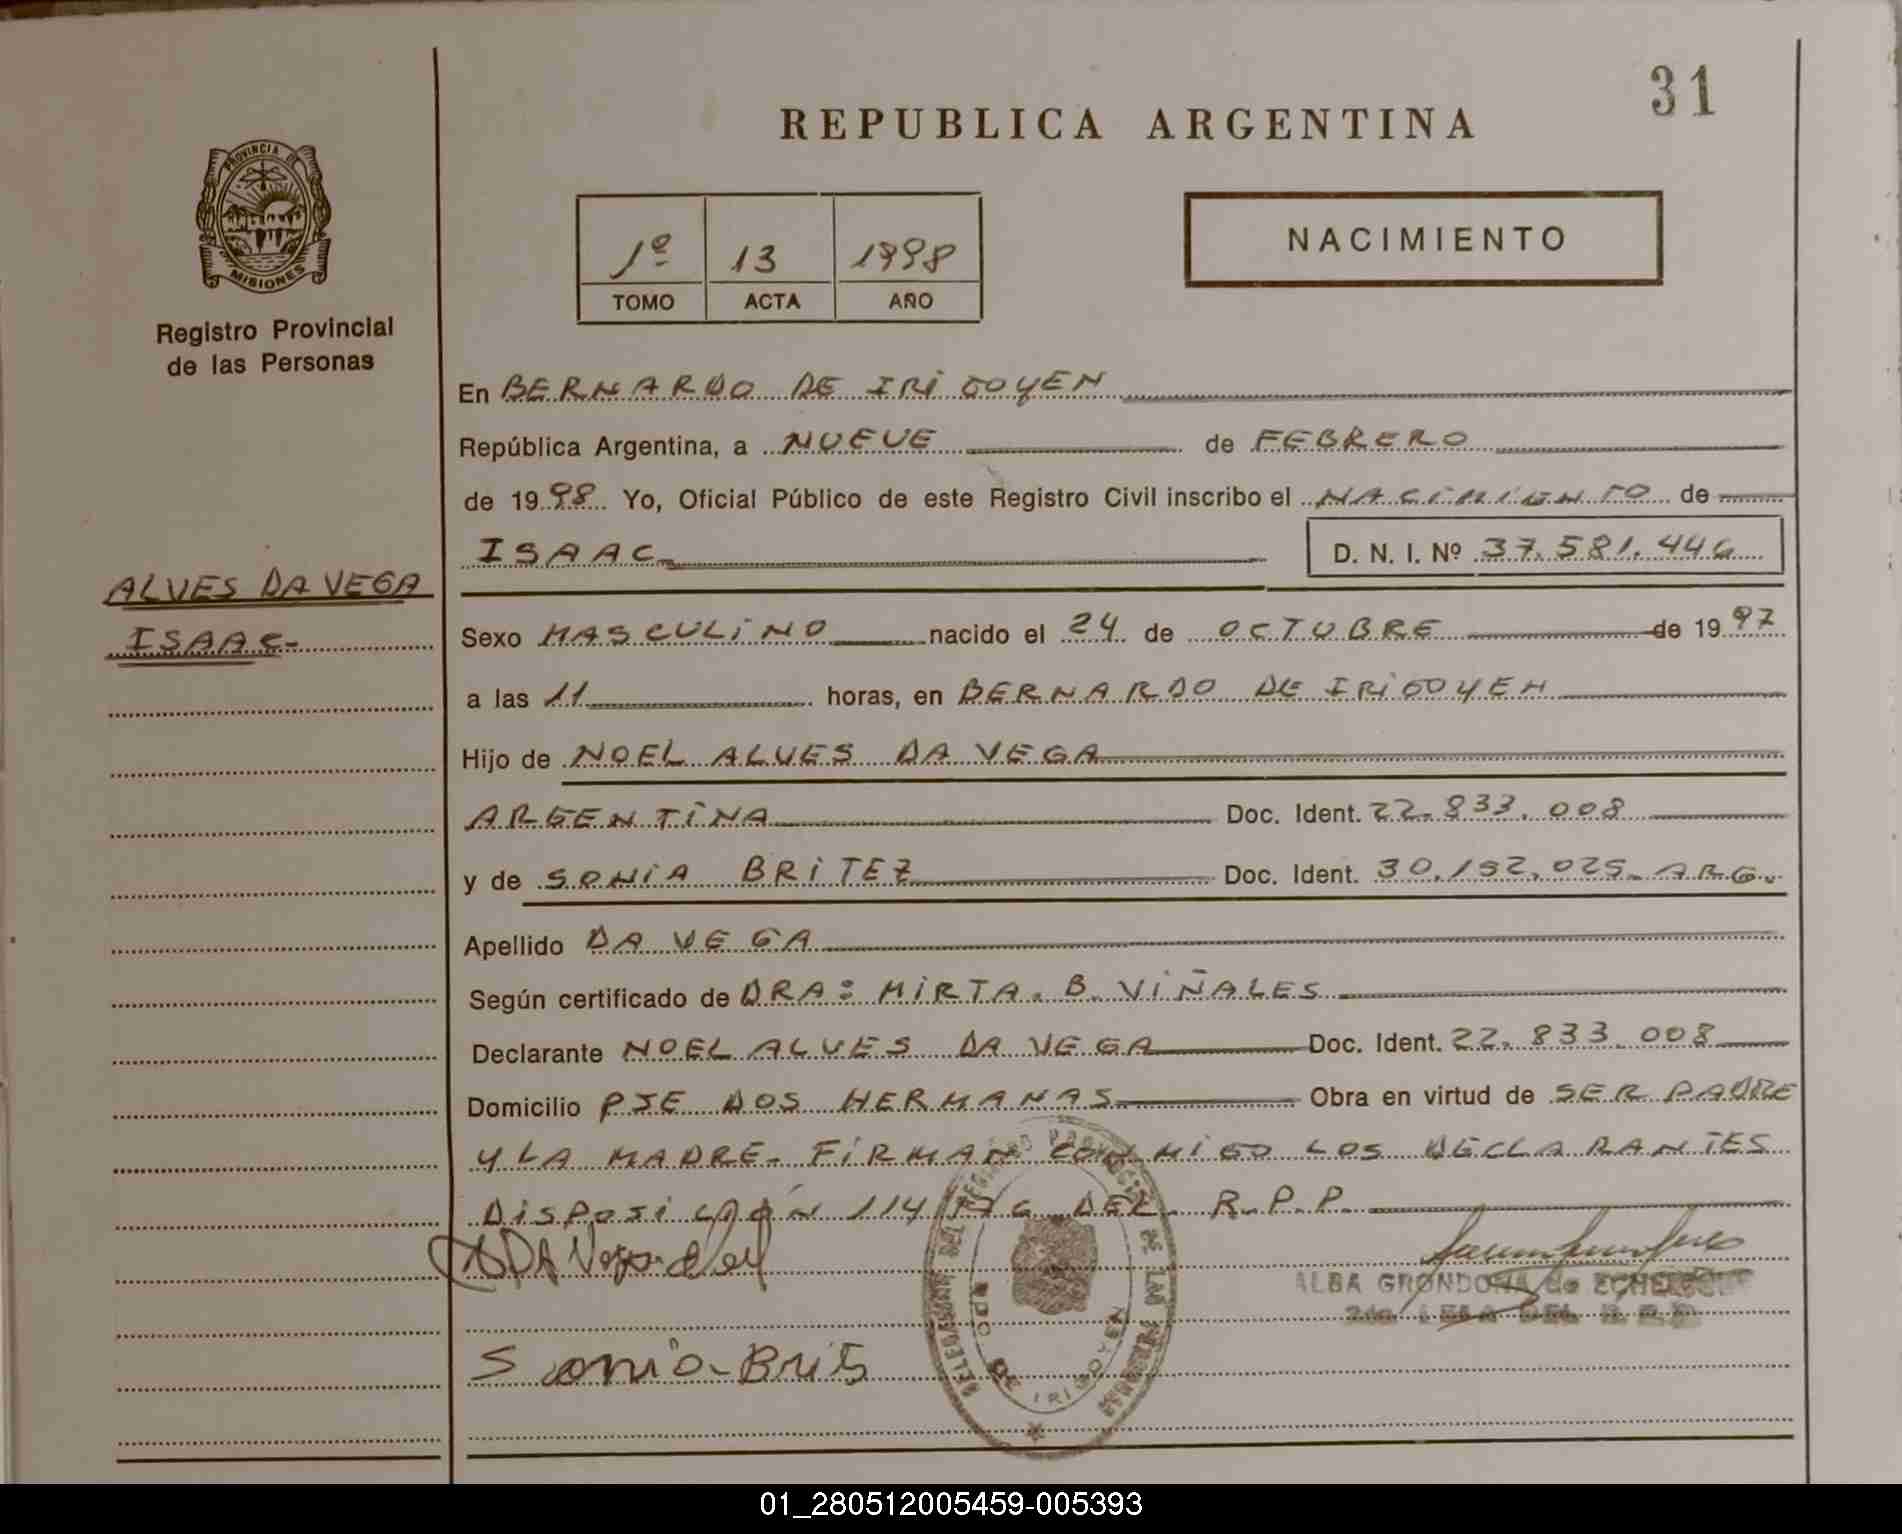 31
REPUBLICA ARGENTINA
PROVINCIA DE
MISIONES
Registro Provincial
de las Personas
1º 13 1998
TOMO ACTA AÑO
NACIMIENTO
En BERNARDO DE IRIGOYEN
República Argentina, a NUEVE de FEBRERO
de 1998 Yo, Oficial Público de este Registro Civil inscribo el NACIMIENTO de
ISAAC D. N. I. Nº 37.581.446
ALVES DA VEGA
ISAAC-
Sexo MASCULINO nacido el 24 de OCTUBRE de 1997
a las 11 horas, en BERNARDO DE IRIGOYEN
Hijo de NOEL ALVES DA VEGA
ARGENTINA Doc. Ident. 22.833.008
y de SONIA BRITEZ Doc. Ident. 30.152.025. ARG.
Apellido DA VEGA
Según certificado de DRA: MIRTA. B. VIÑALES
Declarante NOEL ALVES DA VEGA Doc. Ident. 22.833.008
Domicilio PJE DOS HERMANAS Obra en virtud de SER PADRE
Y LA MADRE- FIRMAN CONMIGO LOS DECLARANTES
DISPOSICIÓN 114 DEL R.P.P.
ALBA GRONDONA de
DEL R.P.P.
Sonia-Brit
DE IRIGOYEN
01_280512005459-005393